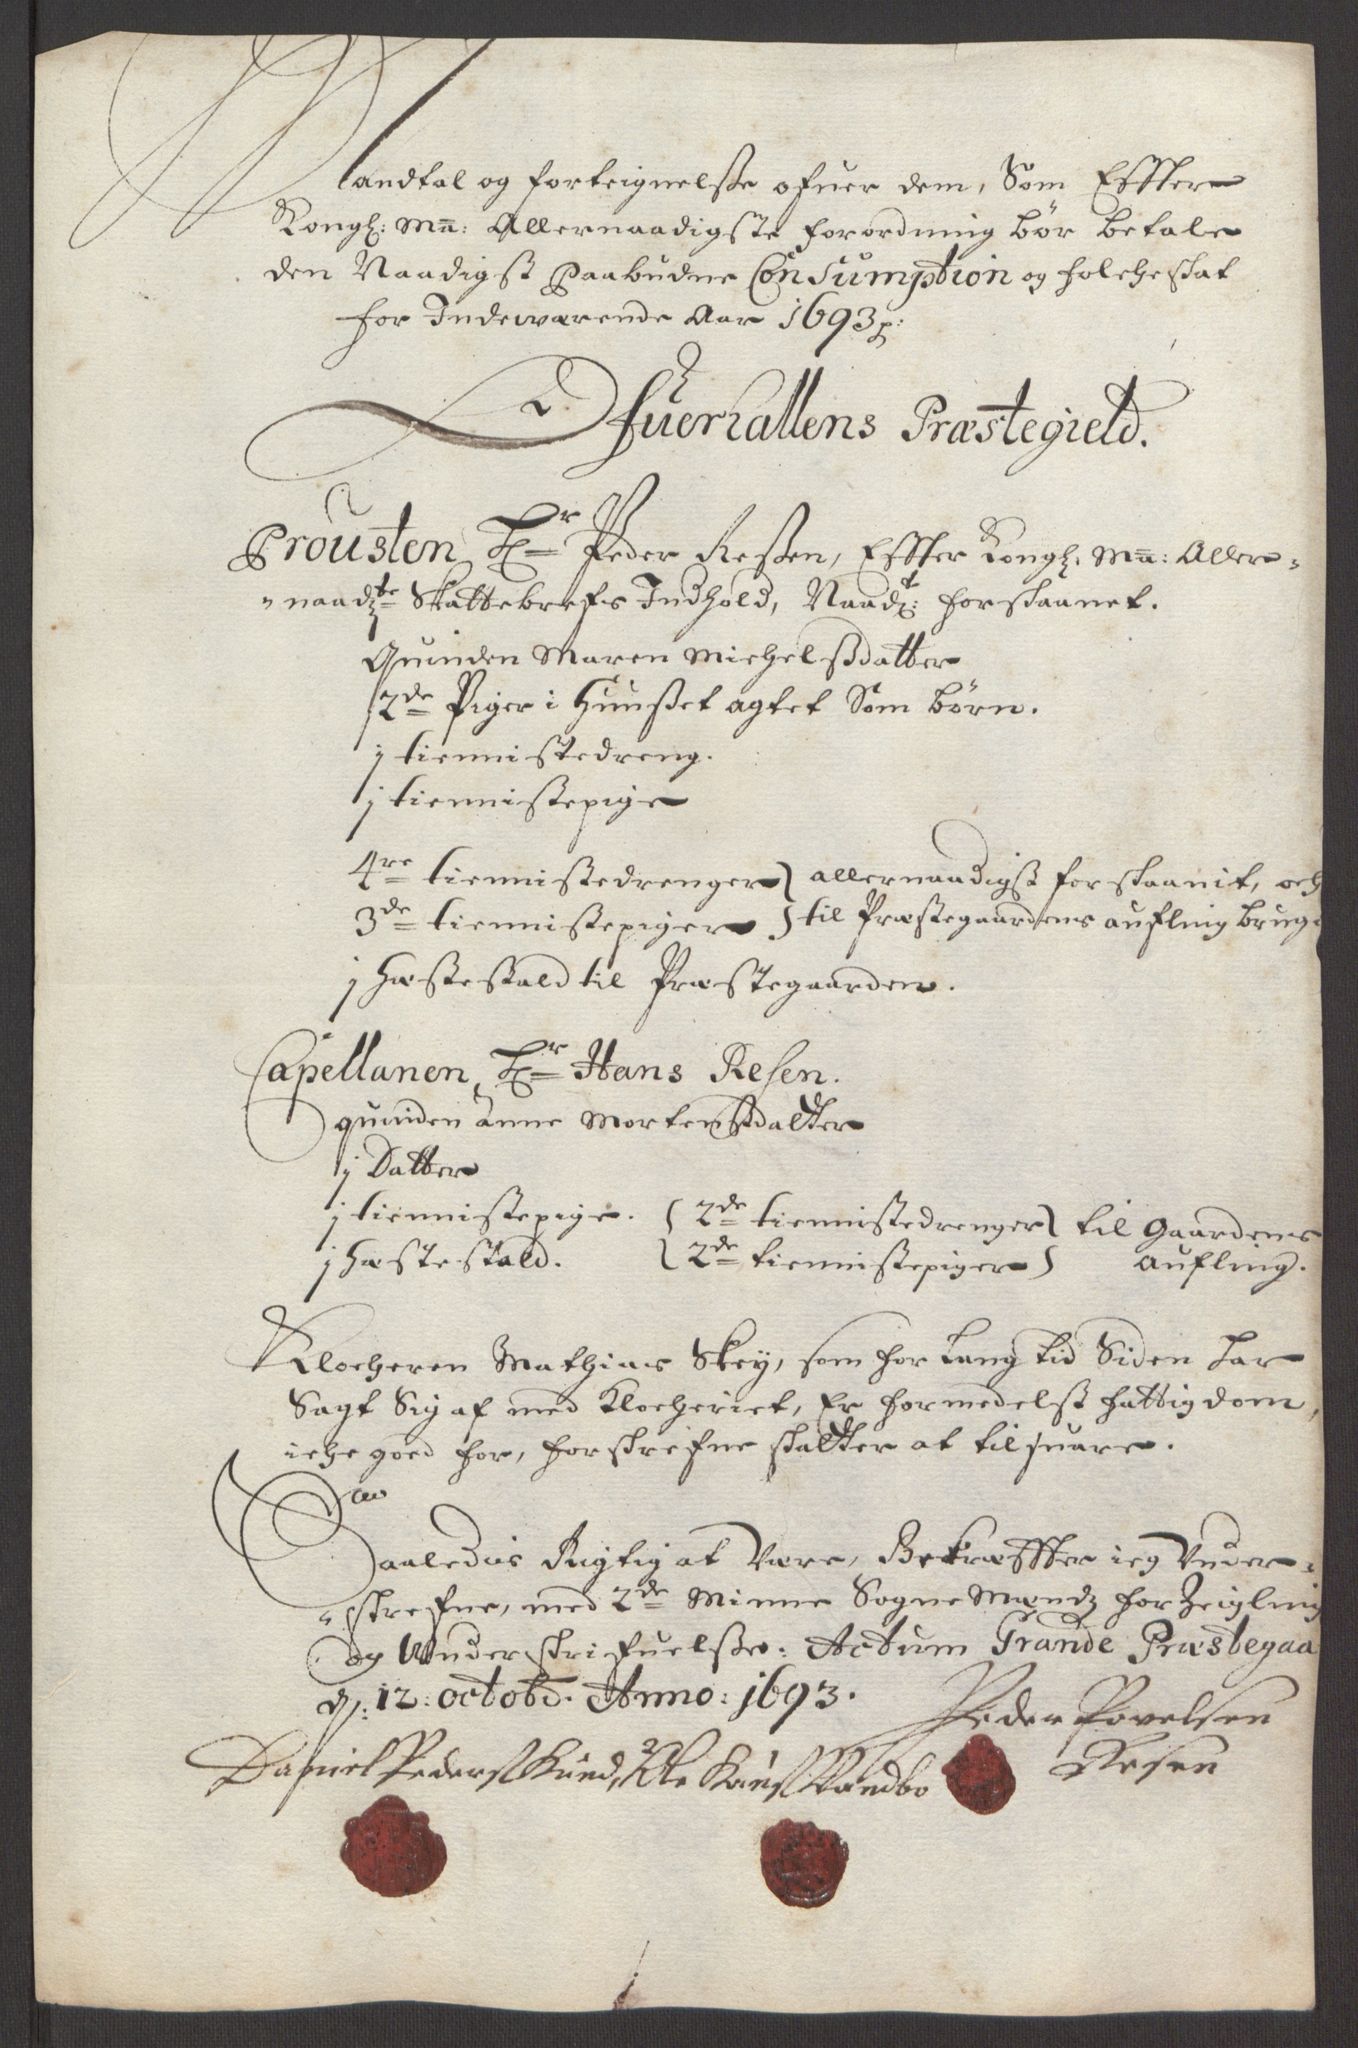 Mandtal og forteignelsse ofuer dem, Som Effter
Kongl: Mtz: Allernaadigste forordning bør betale
den Naadigst Paabudne Consumption og folcheskat
for Indewærende Aar 1693 p:
Offuerhallens Præstegield.
Prousten Hr Peder Ressen, Effter Kongl. Mtz: Aller-
-naadigste Skattebrefs Indhold, Naadt: forskaanet.
Quinden Maren Michelssdatter
2de Piger i Huusset agtet Som børn.
j tiennistedreng.
j tiennistepige
4re tiennistedrenger } allernaadigst forskaanit, och
3de tiennistepiger } til Præstegaardens aufling brug
j Hæstestald til Præstegaarden.
Capellanen, Hr Hans Resen.
quinden Anne Mortenssdatter
j Datter
j tiennistepige. { 2de tiennistedrenger } til Gaardens
j Hæstestald. { 2de tiennistepiger } Aufling.
Klocheren Mathias Skey, som for lang tid Siden har
Sagt Sig af med Klocheriet, Er formedelst fattigdom,
iche goed for, forskrefne skatter at tilsuare.
Saaledis Rigtig at være, Bekræffter ieg Vnder-
-skrefne, med 2de Minne Sogne Mændz forzeigling
og Underskrifuelsse. Actum Grande Præstegaa
d: 12: octobr. Anno: 1693.
Peder Povelsen
Resen
Daniel Peders Kund, Ole Vandbo